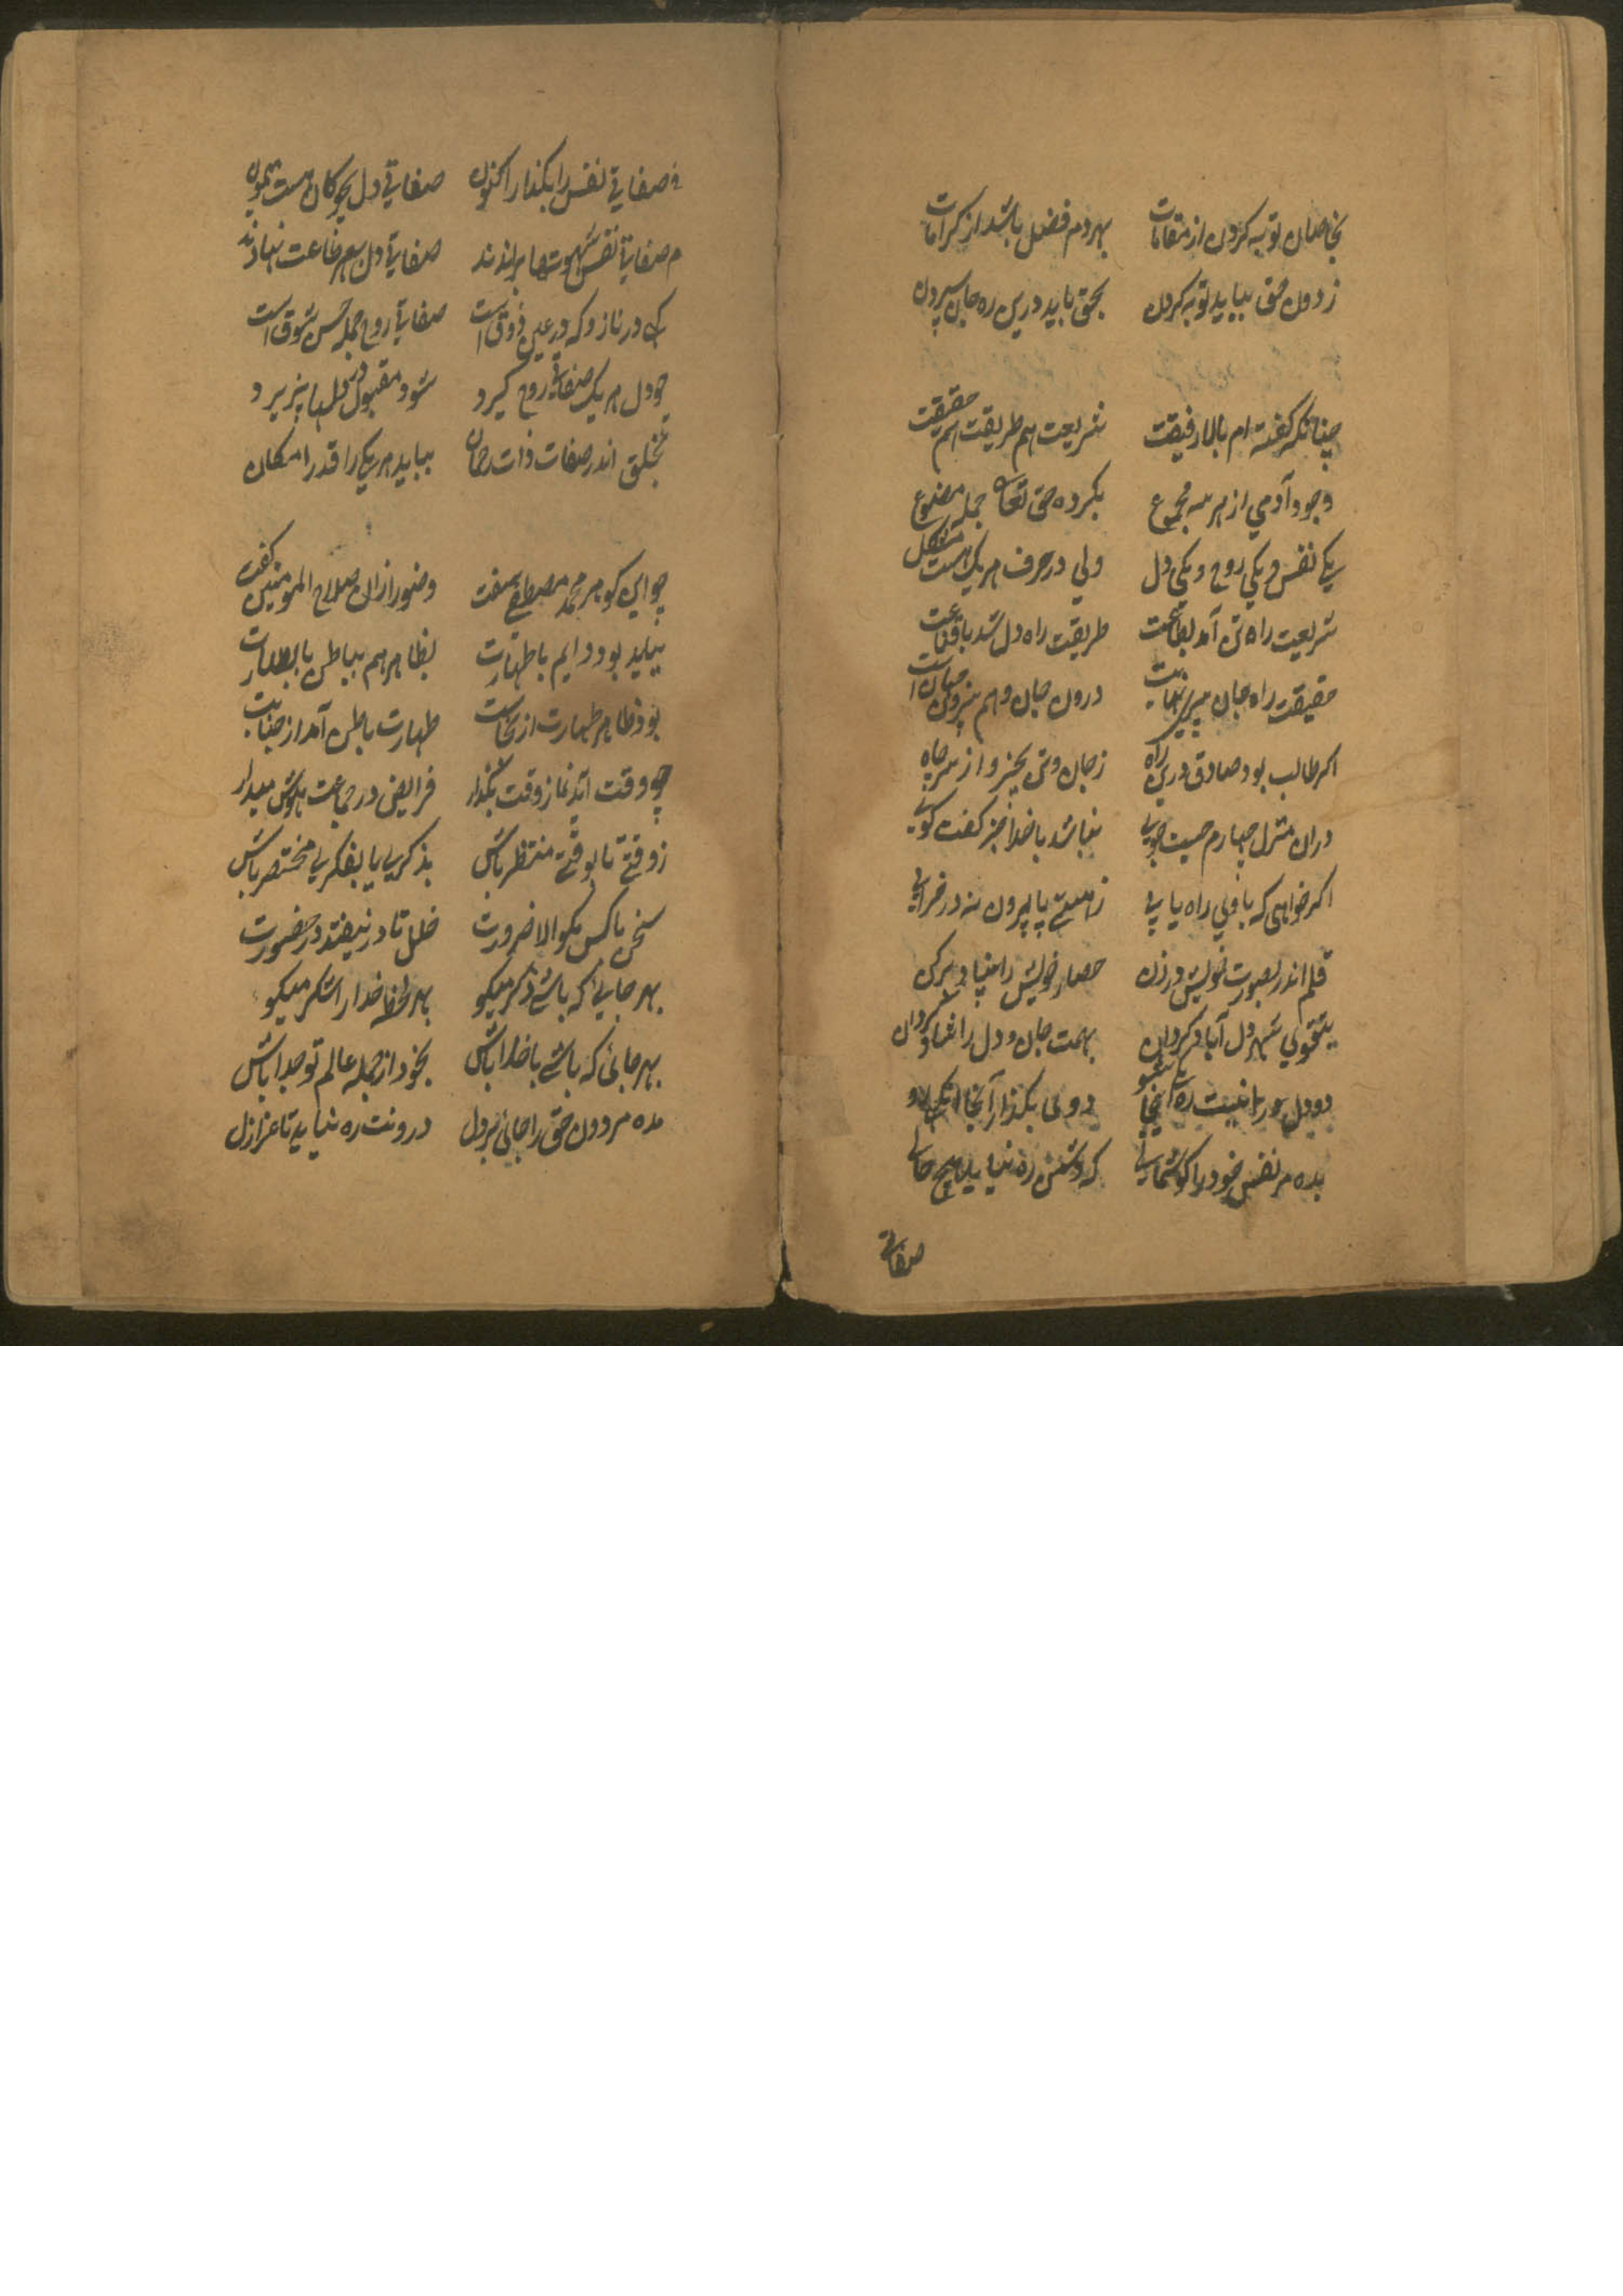 بخاصان توبه کردن از مقامات بهردم فضل باشد از کرامات
ز دون حق بباید توبه کردن بحق باید درین ره جان سپردن
چنانکه گفته ام بالا رفیقت شریعت هم طریقت هم حقیقت
وجود آدمی از هر سه مجموع بکرده حق تعالی جمله مصنوع
یکی نفس و یکی روح و یکی دل ولی در حرف هر یک هست مشکل
شریعت راه تن آمد بطاعت طریقت راه دل شد با قناعت
حقیقت راه جان درون جان و هم بیرون
اکر طالب بود صادق درین راه ز جان و تن بخیز و از سر جاه
دران منزل چهارم چیست جویی نباشد با خدا جز کفت کویی
اکر خواهی که باوی راه یابی ز هستی پا بیرون نه در خرابی
قلم اندر بصورت خویش در زن حصار خویش را بنیاد برکن
بتقوی شهر دل آباد کردان بهمت جان و دل را شاد کردان
دو دل را نیست ره اینجا دوئی بکذار آنجا
بده مر نفس خود را کوشمالی که دشمن ره نیابد هیچ حالی
صفاتی
صفاتی نفس را بکذار اکنون صفاتی دل چو کان هست بیچون
صفاتی نفس شهوتها براندند صفاتی دل بهر طاعت نهادند
که در ناز و که در عین ذوق است صفاتی روح جمله حسن شوق است
چو دل هر یک صفاتی روح کیرد شود مقبول در دلها پذیرد
تخلق اندر صفات ذات رحمان بباید هر یکی را قدر امکان
چو این کوهر محمد مصطفی سفت وضو را زان صلاح المومنین کفت
بباید بود دایم با طهارت بظاهر هم بباطن با بصارت
بود ظاهر طهارت از نجاست طهارت باطن آمد از جنابت
چو وقت آید نماز وقت بکذار فرایض در جماعت هوش میدار
ز وقتی تا بوقتی منتظر باش بذکری یا بفکری مختصر باش
سخن با کس مکو الا ضرورت خلل تا در نیفتد در حضورت
بهر جایی که باشی ذکر میکو بهر لحظه خدا را شکر میکو
بهر جائی که باشی با خدا باش بخود از جمله عالم تو جدا باش
مده مر دون حق را جائی بر دل درونت ره نیابد تا عزازل